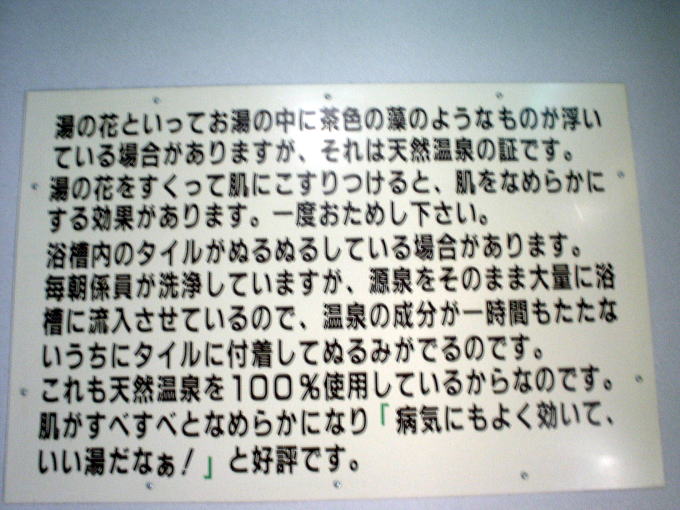 湯の花といってお湯の中に茶色の藻のようなものが浮い
ている場合がありますが、それは天然温泉の証です。
湯の花をすくって肌にこすりつけると、肌をなめらかに
する効果があります。一度おためし下さい。
浴槽内のタイルがぬるぬるしている場合があります。
毎朝係員が洗浄していますが、源泉をそのまま大量に浴
槽に流入させているので、温泉の成分が一時間もたたな
いうちにタイルに付着してぬるみがでるのです。
これも天然温泉を100%使用しているからなのです。
肌がすべすべとなめらかになり「病気にもよく効いて、
いい湯だなぁ!」と好評です。